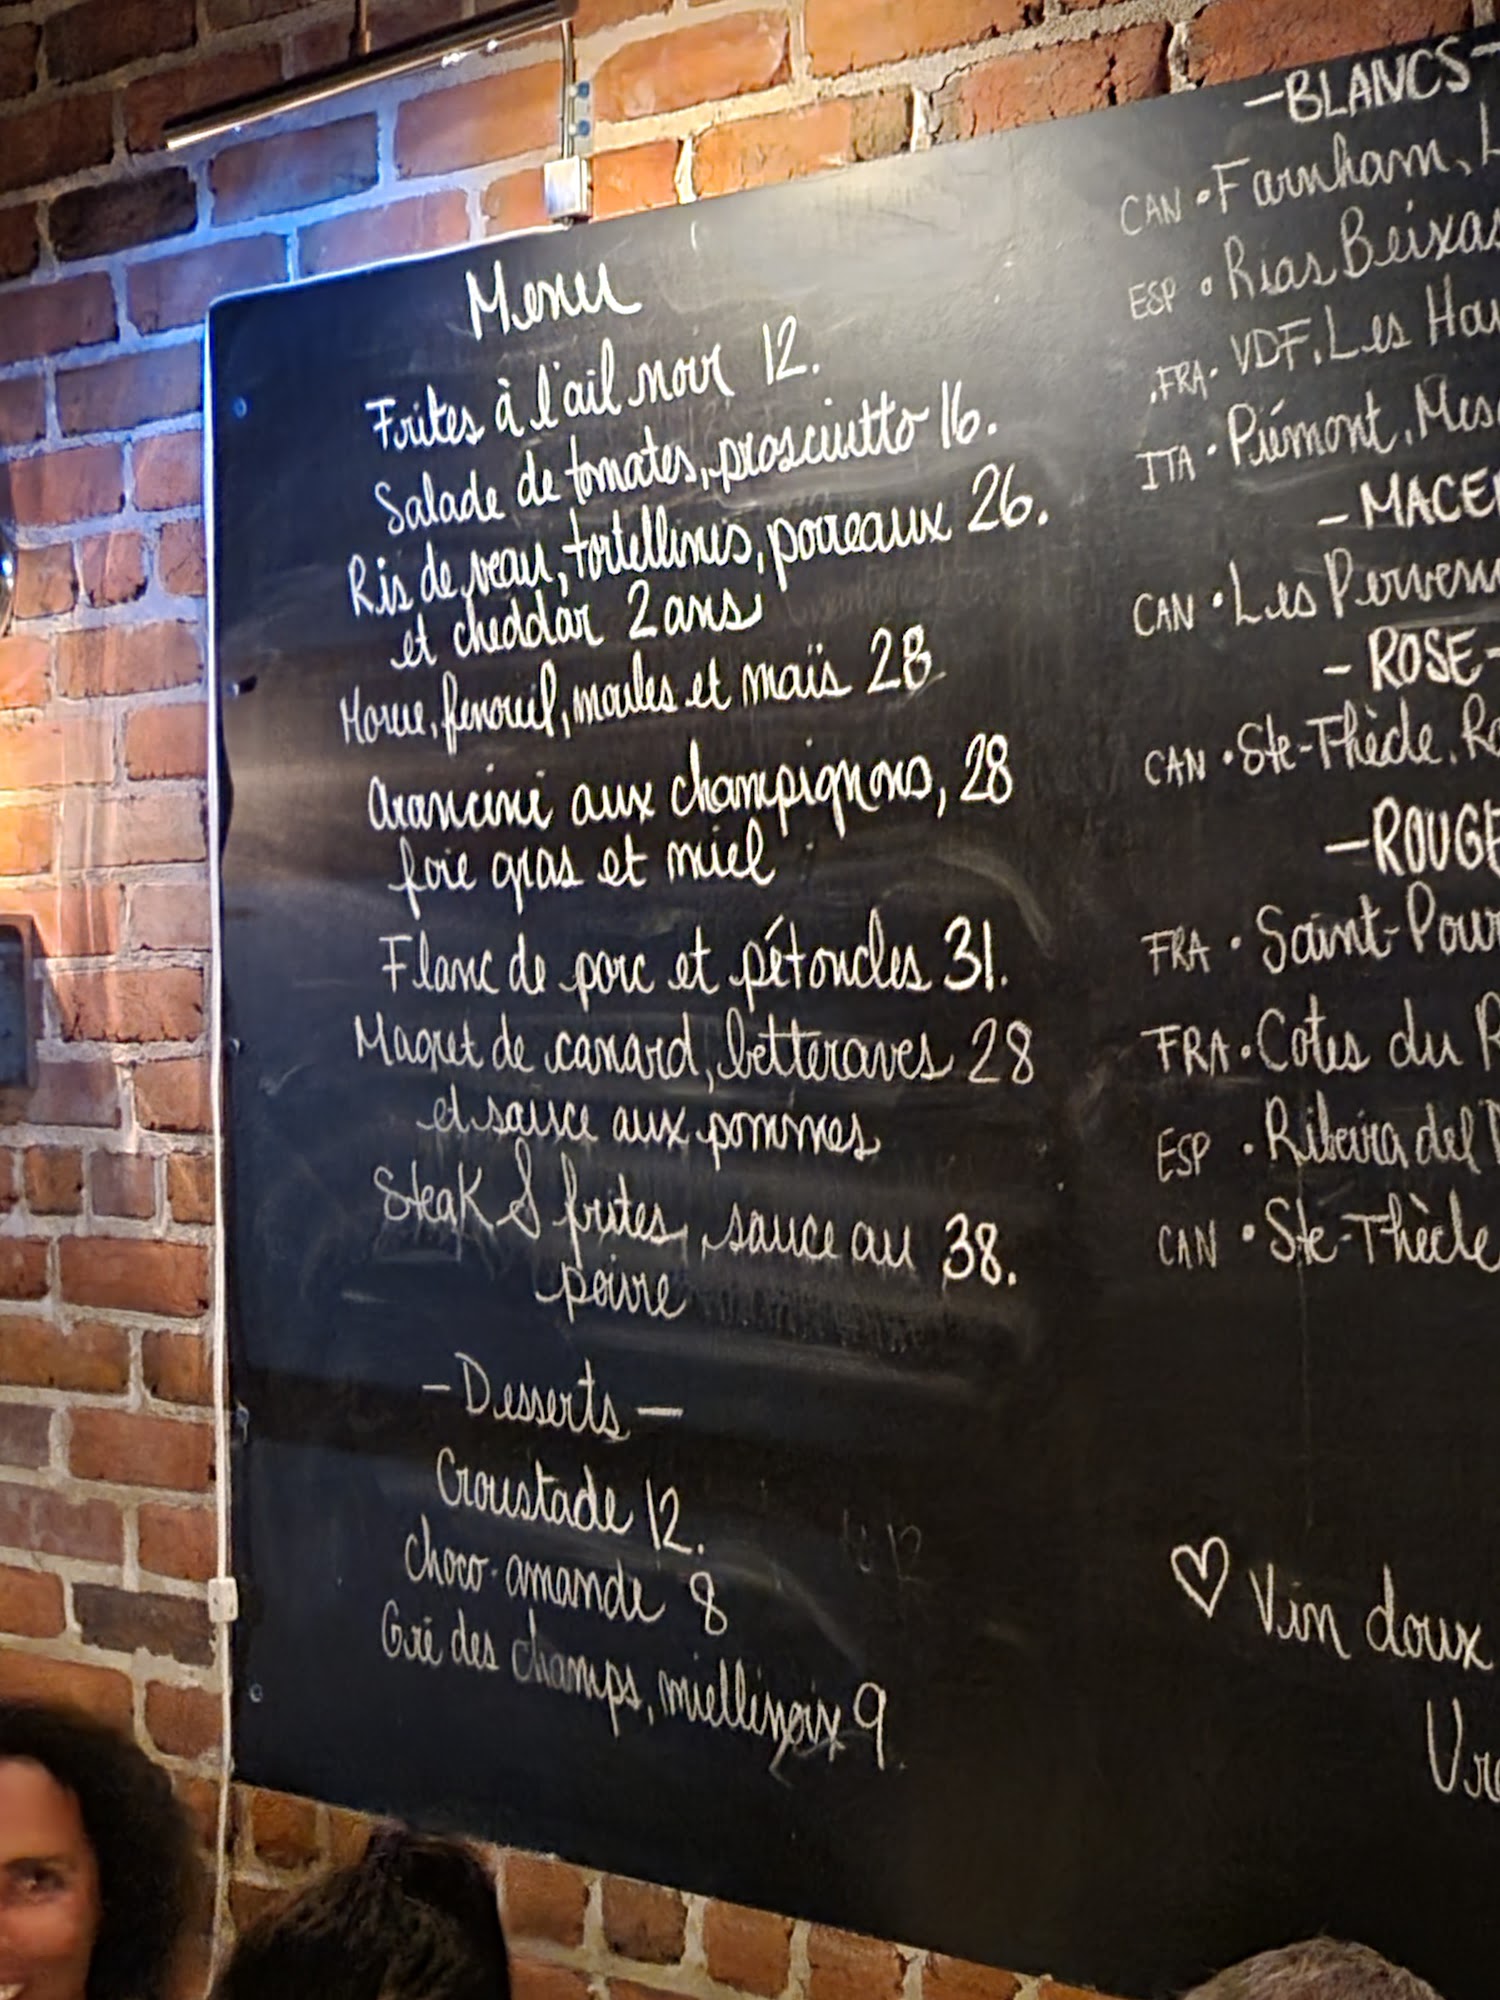 Menu
Frites à l'ail noir 12.
Salade de tomates, prosciutto 16.
Ris de veau, tortellinis, poireaux 26.
et cheddar 2 ans
Morue, fenouil, moules et maïs 28
Arancini aux champignons, 28
foie gras et miel
Flanc de porc et pétoncles 31.
Magret de canard, betteraves 28
et sauce aux pommes
Steak & frites, sauce au 38.
poivre
- Desserts -
Croustade 12.
choco-amande 8
Gré des champs, miel, noix 9
- BLANCS -
CAN • Farnham, L
ESP • Rias Beixas
FRA • VDF, Les Hau
ITA • Piémont, Mes
- MACE
CAN • Les Perven
- ROSE -
CAN • Ste-Thècle, Ro
- ROUGE
FRA • Saint-Pour
FRA • Cotes du R
ESP • Ribeira del D
CAN • Ste-Thècle
♡ Vin doux
Vre